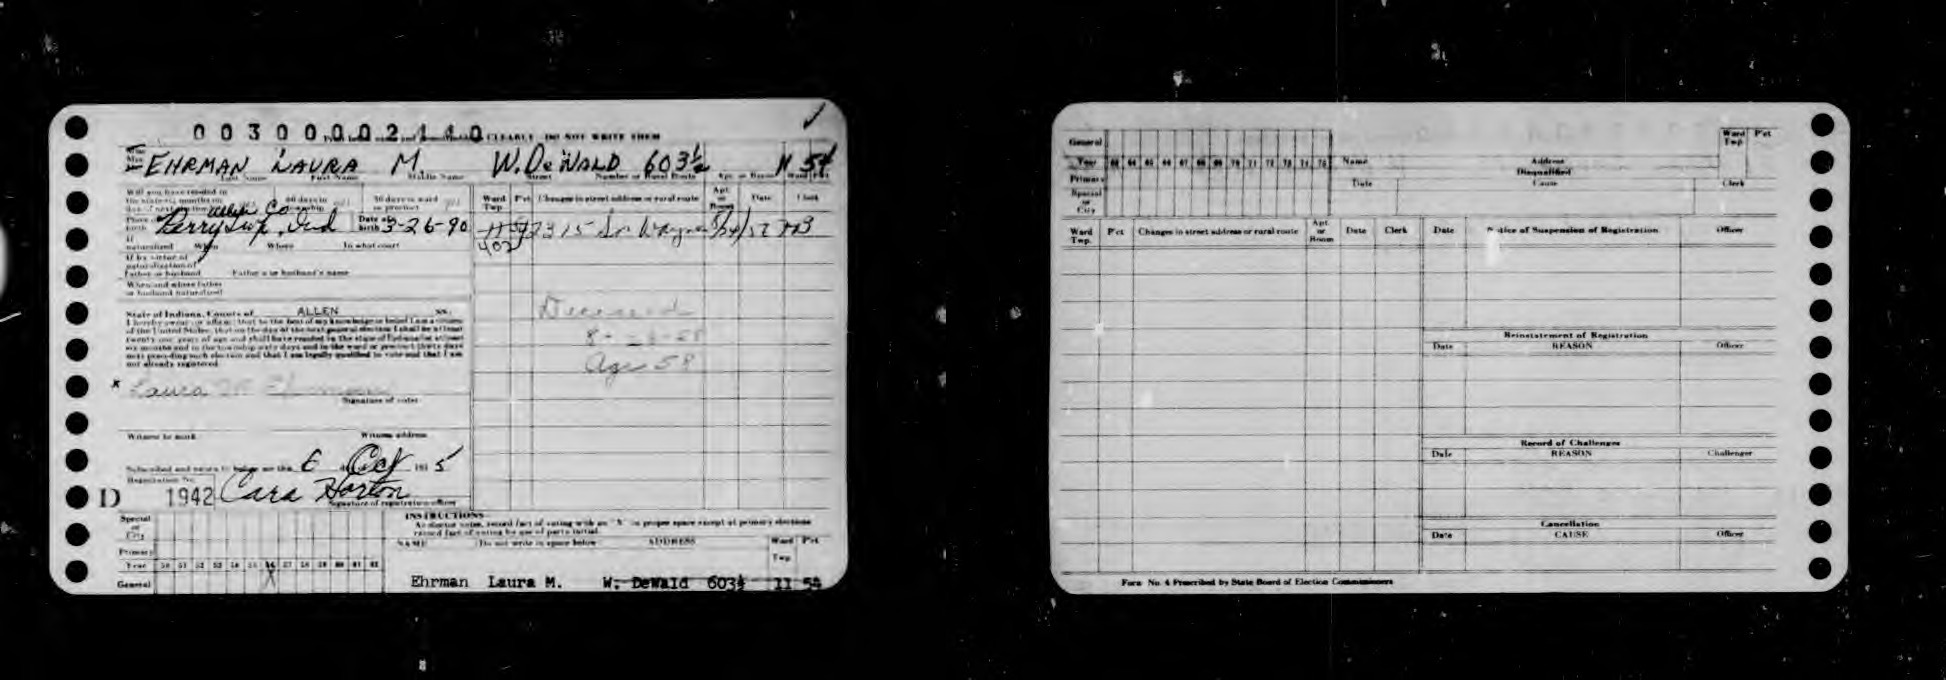 00300002110 CLEARLY DO NOT WRITE THEM
EHRMAN LAURA M. W. DeWALD 603½ 11 54
Last Name First Name Middle Name Street Number or Rural Route Apt. or Room Ward Pct
Will you have resided in
the state six months on 60 days in 30 days in ward
day of next election township or precinct
Ward Twp. Pct Changes in street address or rural route Apt or Room Date Clerk
Place of birth Perry Twp. Allen Co. Ind Date of birth 3-26-90
2315 So. Wayne
402
If naturalized When Where In what court
If by virtue of
naturalization of
father or husband Father's or husband's name
When and where father
or husband naturalized
State of Indiana, County of ALLEN SS:
I hereby swear or affirm that to the best of my knowledge or belief I am a citizen
of the United States, that on the day of the next general election I shall be at least
twenty one years of age and shall have resided in the state of Indiana at least
six months and in the township sixty days and in the ward or precinct thirty days
next preceding such election and that I am legally qualified to vote and that I am
not already registered
Deceased
Age 58
x Laura M. Ehrman
Signature of voter
Witness to mark Witness address
Subscribed and sworn to before me this 6 Oct 195
Registration No.
D 1942 Cara Horton
Signature of registration officer
Special or City
Primary
Year 50 51 52 53 54 55 56 57 58 59 60 61 62
General X
INSTRUCTIONS
As elector votes, record fact of voting with an "X" in proper space except at primary elections
record fact of voting by use of party initial.
NAME (Do not write in space below) ADDRESS Ward Twp. Pct
Ehrman Laura M. W. DeWald 603½ 11 54
General
Year 63 64 65 66 67 68 69 70 71 72 73 74 75
Primary
Special or City
Name Address Ward Twp Pct
Disqualified
Date Cause Clerk
Ward Twp. Pct Changes in street address or rural route Apt. or Room Date Clerk
Date Notice of Suspension of Registration Officer
Reinstatement of Registration
Date REASON Officer
Record of Challenges
Date REASON Challenger
Cancellation
Date CAUSE Officer
Form No. 4 Prescribed by State Board of Election Commissioners